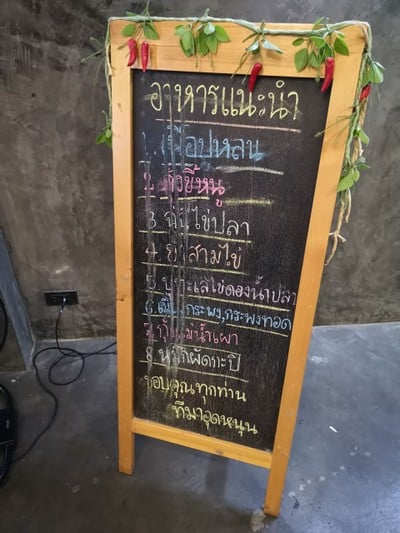 อาหารแนะนำ
1. เนื้อปูหลน
2. กุ้งขี้หนู
3. ไข่ปลา
4. ยำสามไข่
5. ทะเลไข่ดองน้ำปลา
6. กระพง, กระพงทอด
7. กุ้งแม่น้ำเผา
8. ผัดกะปิ
ขอบคุณทุกท่าน
ที่มาอุดหนุน